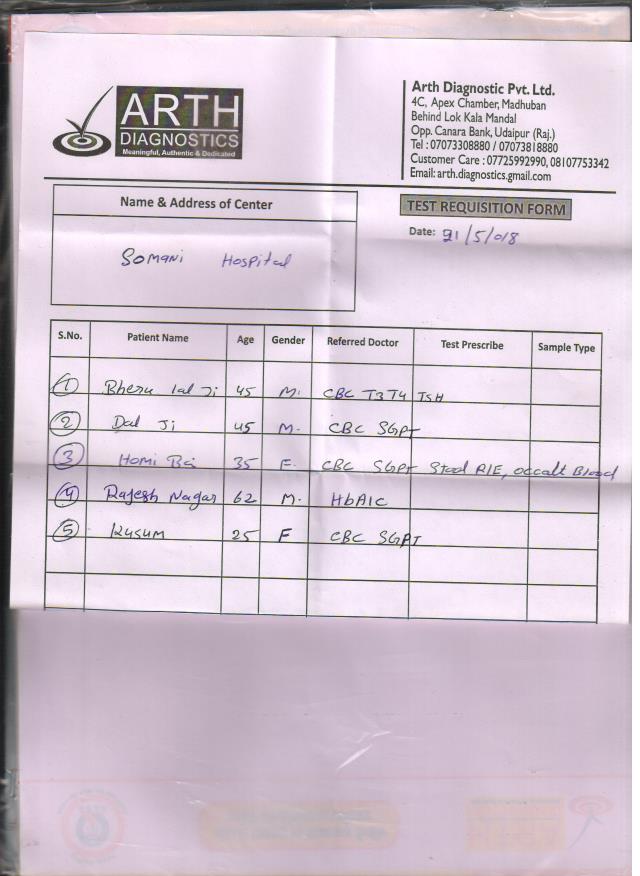 ARTH
DIAGNOSTICS
Meaningful, Authentic & Dedicated
Arth Diagnostic Pvt. Ltd.
4C, Apex Chamber, Madhuban
Behind Lok Kala Mandal
Opp. Canara Bank, Udaipur (Raj.)
Tel : 07073308880 / 07073818880
Customer Care : 07725992990, 08107753342
Email: arth.diagnostics.gmail.com
Name & Address of Center
TEST REQUISITION FORM
Date: 21/5/018
Somani Hospital
S.No. Patient Name Age Gender Referred Doctor Test Prescribe Sample Type
1 Bheru lal Ji 45 M. CBC T3 T4 TSH
2 Dal Ji 45 M. CBC SGPT
3 Homi Bai 35 F. CBC SGPT Stool R/E, occult Blood
4 Rajesh Nagar 62 M. HbA1c
5 Kusum 25 F CBC SGPT